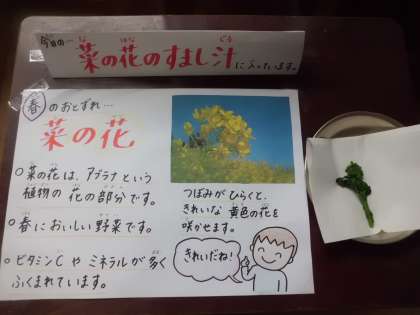 今日の…
菜の花のすまし汁
に入っています。
春のおとずれ…
菜の花
○菜の花は、アブラナという
植物の花の部分です。
○春においしい野菜です。
○ビタミンCやミネラルが多く
ふくまれています。
つぼみがひらくと、
きれいな黄色の花を
咲かせます。
きれいだね!